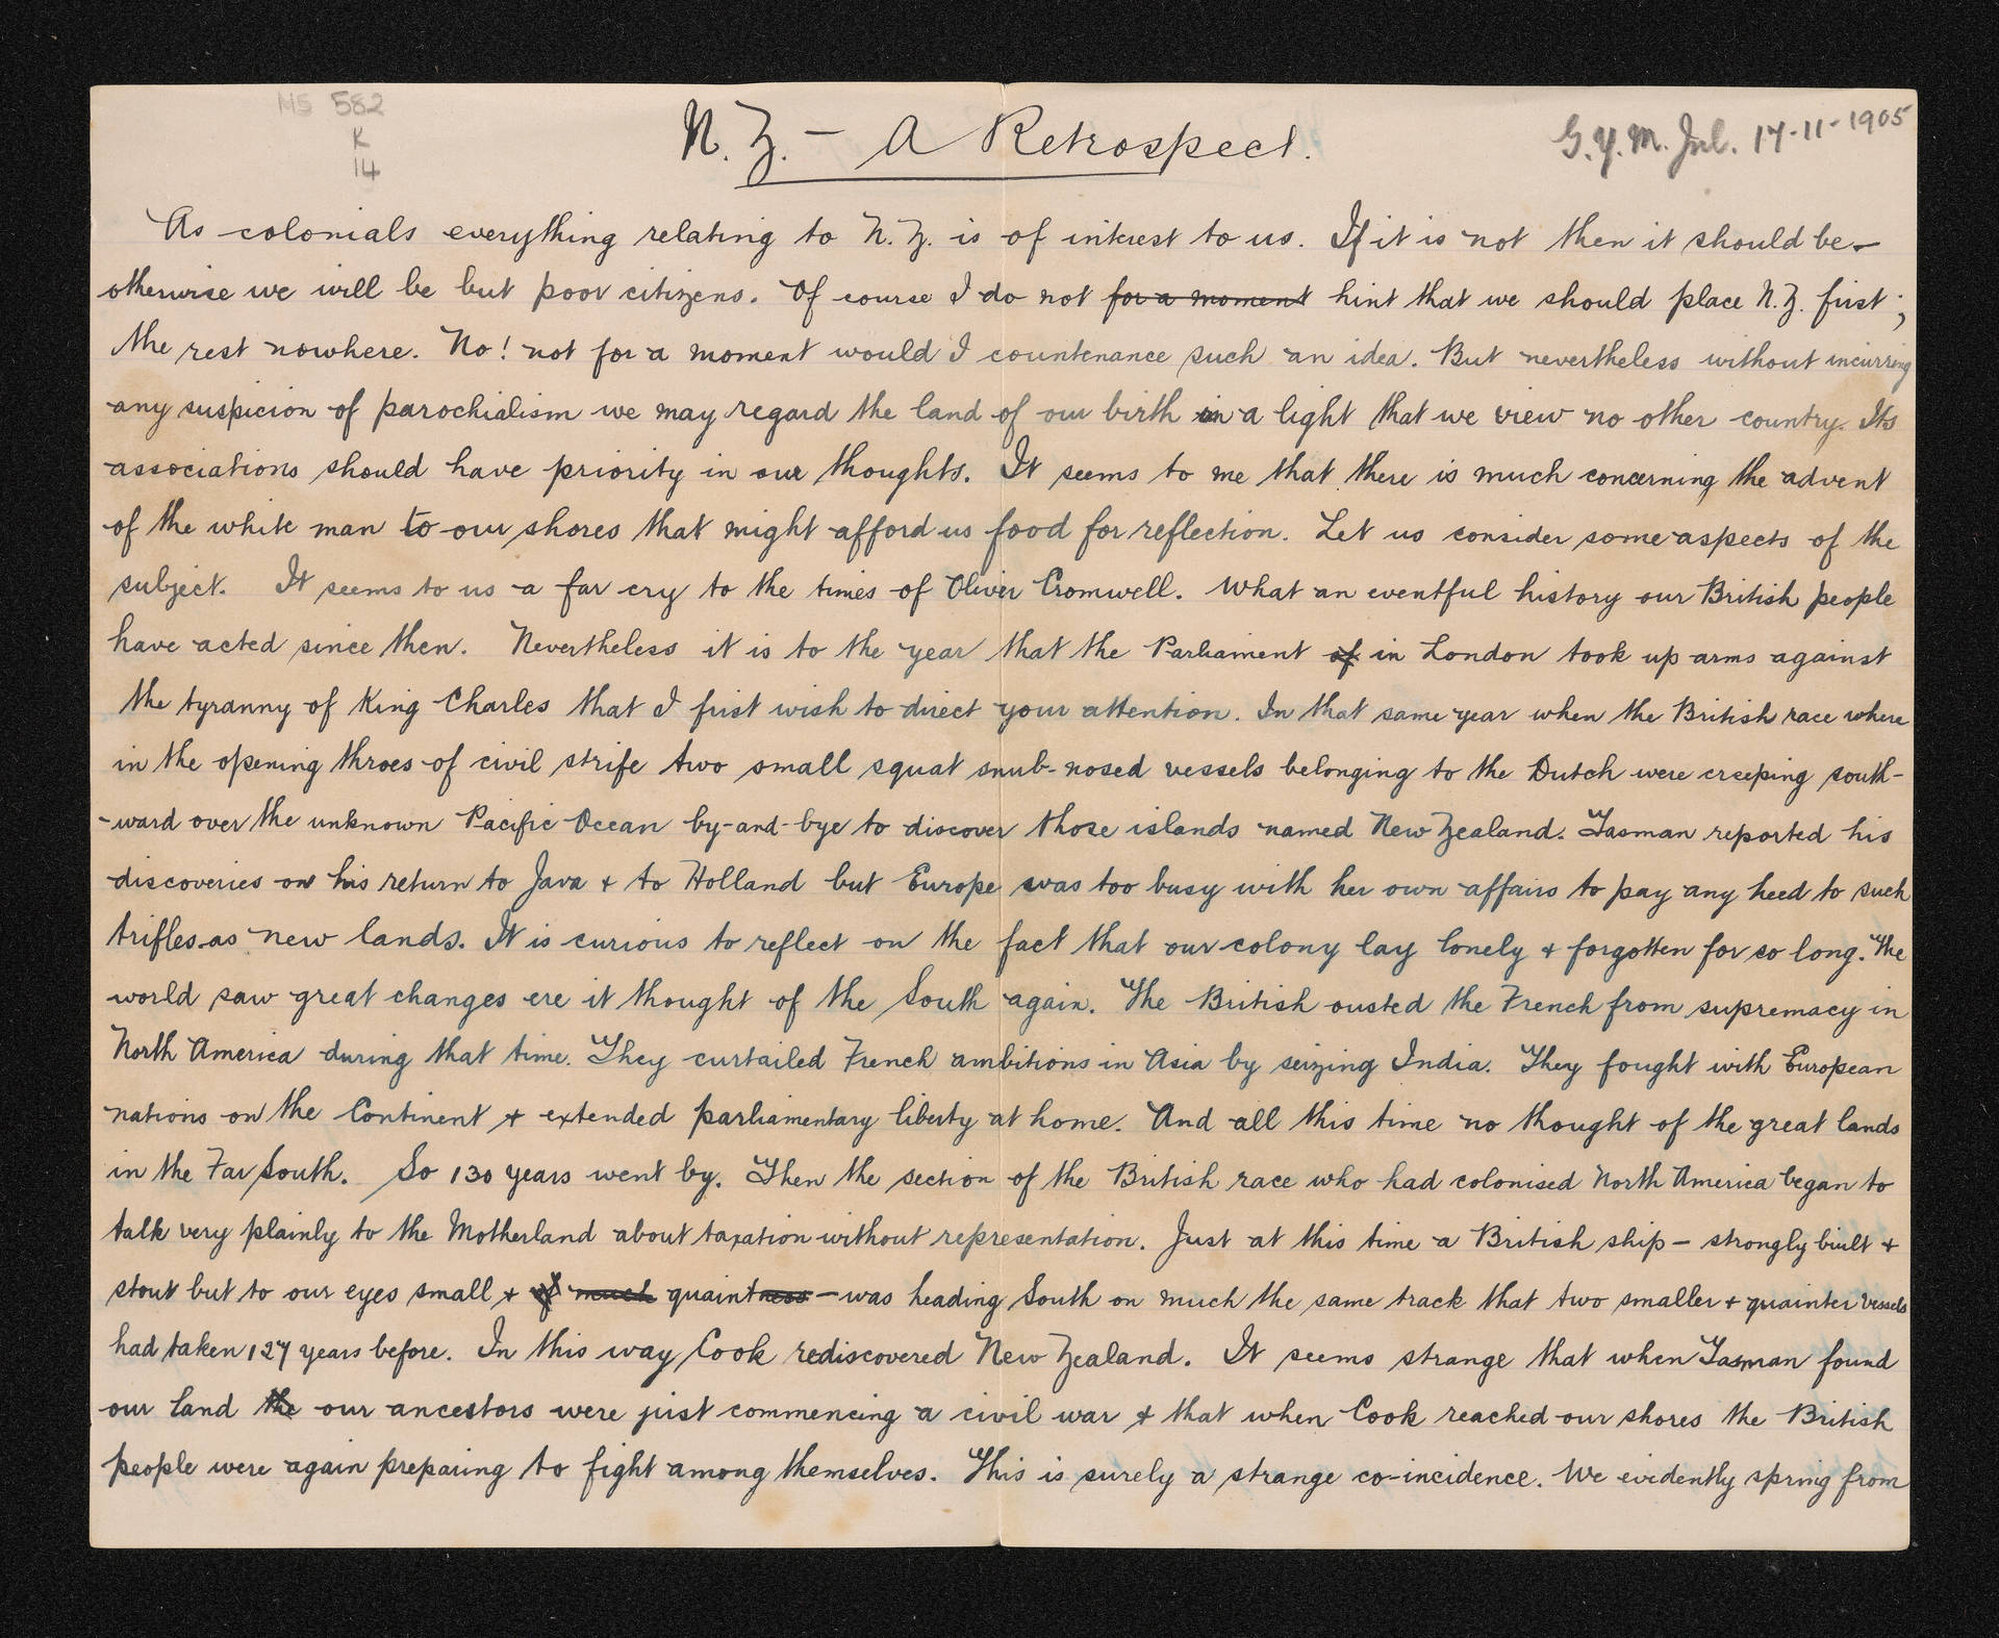 MS 582
K
14
N.Z. — A Retrospect.
G.Y.M. Jnl. 17-11-1905
As colonials everything relating to N.Z. is of interest to us. If it is not then it should be—
otherwise we will be but poor citizens. Of course I do not for a moment hint that we should place N.Z. first;
the rest nowhere. No! not for a moment would I countenance such an idea. But nevertheless without incurring
any suspicion of parochialism we may regard the land of our birth in a light that we view no other country. Its
associations should have priority in our thoughts. It seems to me that there is much concerning the advent
of the white man to our shores that might afford us food for reflection. Let us consider some aspects of the
subject. It seems to us a far cry to the times of Oliver Cromwell. What an eventful history our British people
have acted since then. Nevertheless it is to the year that the Parliament of in London took up arms against
the tyranny of King Charles that I first wish to direct your attention. In that same year when the British race where
in the opening throes of civil strife two small squat snub-nosed vessels belonging to the Dutch were creeping south-
-ward over the unknown Pacific Ocean by-and-bye to discover those islands named New Zealand. Tasman reported his
discoveries on his return to Java & to Holland but Europe was too busy with her own affairs to pay any heed to such
trifles as new lands. It is curious to reflect on the fact that our colony lay lonely & forgotten for so long. The
world saw great changes ere it thought of the South again. The British ousted the French from supremacy in
North America during that time. They curtailed French ambitions in Asia by seizing India. They fought with European
nations on the Continent & extended parliamentary liberty at home. And all this time no thought of the great lands
in the Far South. So 130 years went by. Then the section of the British race who had colonised North America began to
talk very plainly to the Motherland about taxation without representation. Just at this time a British ship — strongly built &
stout but to our eyes small & of much quaintness — was heading South on much the same track that two smaller & quainter vessels
had taken 127 years before. In this way Cook rediscovered New Zealand. It seems strange that when Tasman found
our land the our ancestors were just commencing a civil war & that when Cook reached our shores the British
people were again preparing to fight among themselves. This is surely a strange co-incidence. We evidently spring from